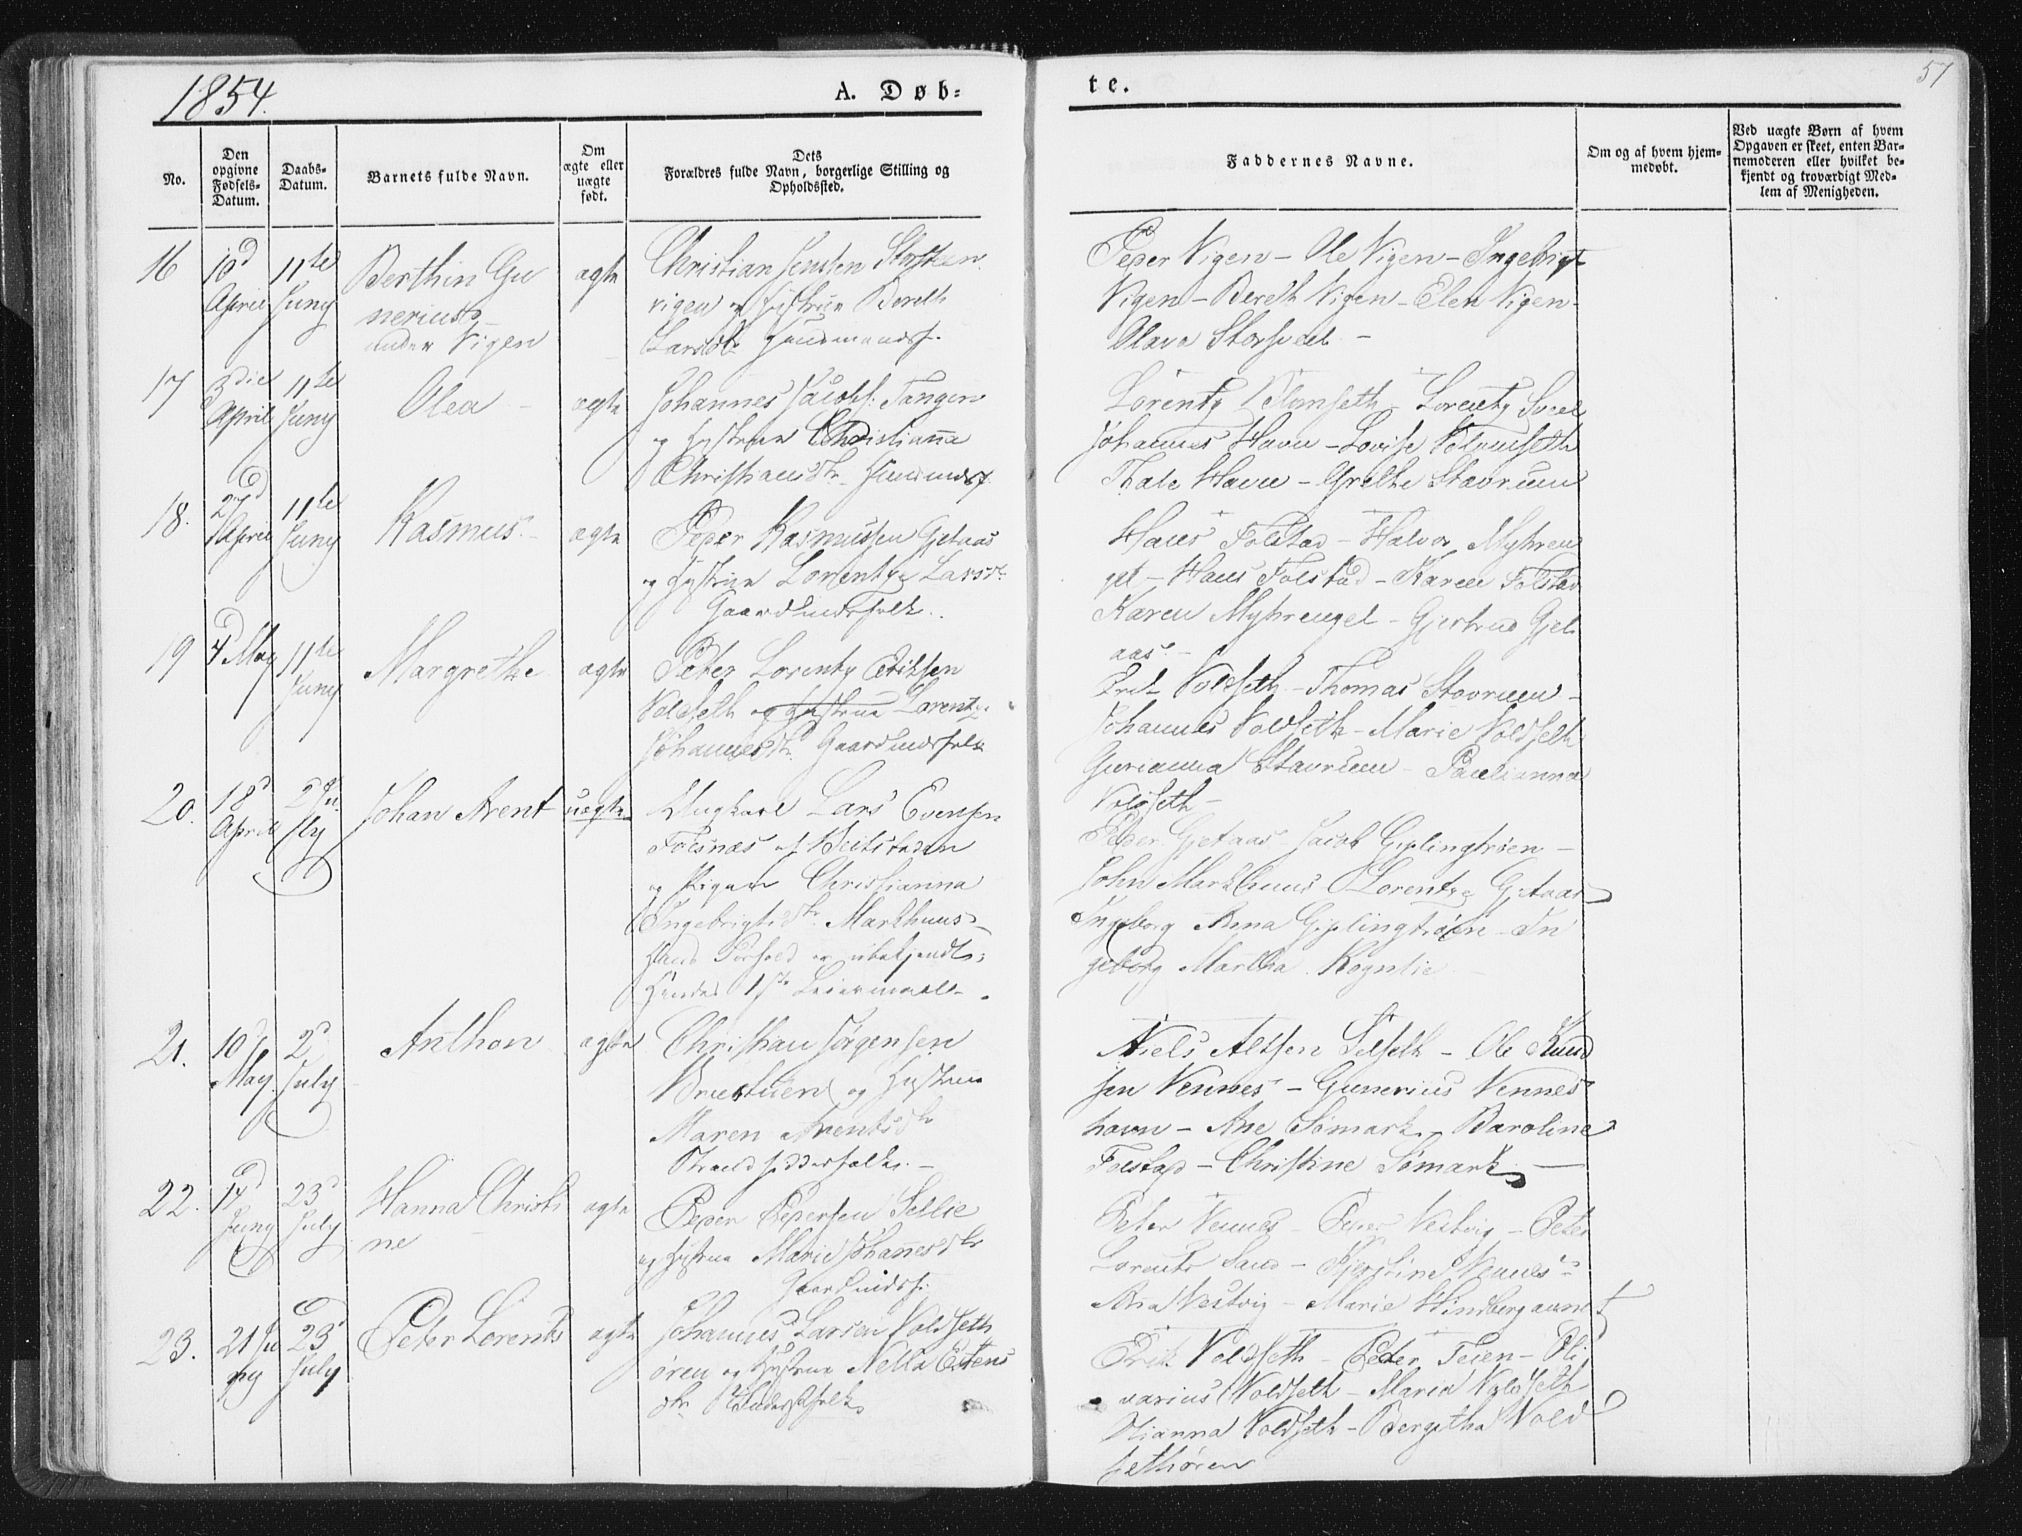 1854.
A. Døb=
te.
57
No.
Den opgivne Fødsels-Datum.
Daabs-Datum.
Barnets fulde Navn.
Om ægte eller uægte født.
Dets Forældres fulde Navn, borgerlige Stilling og Opholdssted.
Faddernes Navne.
Om og af hvem hjemmedøbt.
Ved uægte Børn af hvem Opgaven er skeet, enten Barnemoderen eller hvilket bekjendt og troværdigt Medlem af Menigheden.
16
April
11te Juny
Berthin Gu
nerius
under Vigen
ægte
Christian Jensen
vigen og Hustrue Bereth
Larsdtr
Peder Vigen – Ole Vigen – Ingebrigt
Vigen – Bereth Vigen – Elen Vigen –
Olava
17
3die April
11te Juny
Olea –
ægte
Johannes Jacobs. Tangen
og Hustrue Christianna
Christiansdtr.
Lorentz – Lorentz
Johannes Havn – Lovise
Havn – Grethe Stavrum
18.
27d April
11te Juny
Rasmus. –
ægte
Peder Rasmussen Gjetaas
og Hustrue Lorentze Larsdtr
Gaardmandsfolk.
Hans Folstad – Halvor Myhren
gel – Hans Folstad – Karen Folstad
Karen Myhrengel – Gjertrud Gjet
aas. –
19
4d May
11te Juny
Margrethe
ægte
Peter Lorentz Eriksen
Voldseth og Hustrue Lorentze
Johannesdtr. Gaardmandsfolk
Voldseth – Thomas Stavrum –
Johannes Voldseth – Marie Voldseth
Gurianna Stavrum – Paulianna
Voldseth –
20.
18d April
2d Ju
ly
Johan Arent
uægte
Ungkarl Lars Evensen
Folsnæs af Beitstaden
og Pigen Christianna
Ingebrigtsdtr. Markhuus –
Hans Forhold er ubekjendt;
Hendes 1ste Leiermaal.
Peder Gjetaas – Jacob Gjeplingtrøen –
John Markhuus – Lorentze Gjetaas
Ingeborg Anna Gjeplingtrøen – In
geborg Martha
21.
10d May
2d July
Anthon
ægte
Christian Jørgensen
og Hustrue
Maren Arentsdtr
Strandsidderfolk. –
Niels Altsen Selseth – Ole Knud
sen Vennes – Gunerius Vennes
havn – Ane Sømark – Baroline
Folstad – Christine Sømark –
22.
14d Juny
23d July
Hanna Christi
ne –
ægte
Peder Pedersen Sellie
og Hustrue Marie Johannesdtr
Peter Vennes – Peder Vestvig – Peter
Lorents Sand – Kjerstine Vennes
Ana Vestvig – Marie
23.
21 Ju
ny
23d July
Peter Lorents
ægte
Johannes Larsen Voldseth
øren og Hustrue Nella Estens
dtr.
Erik Voldseth – Peder Feien – Oli
varius Voldseth – Maria Voldseth
Voldseth – Bergitha Vold
sethøren